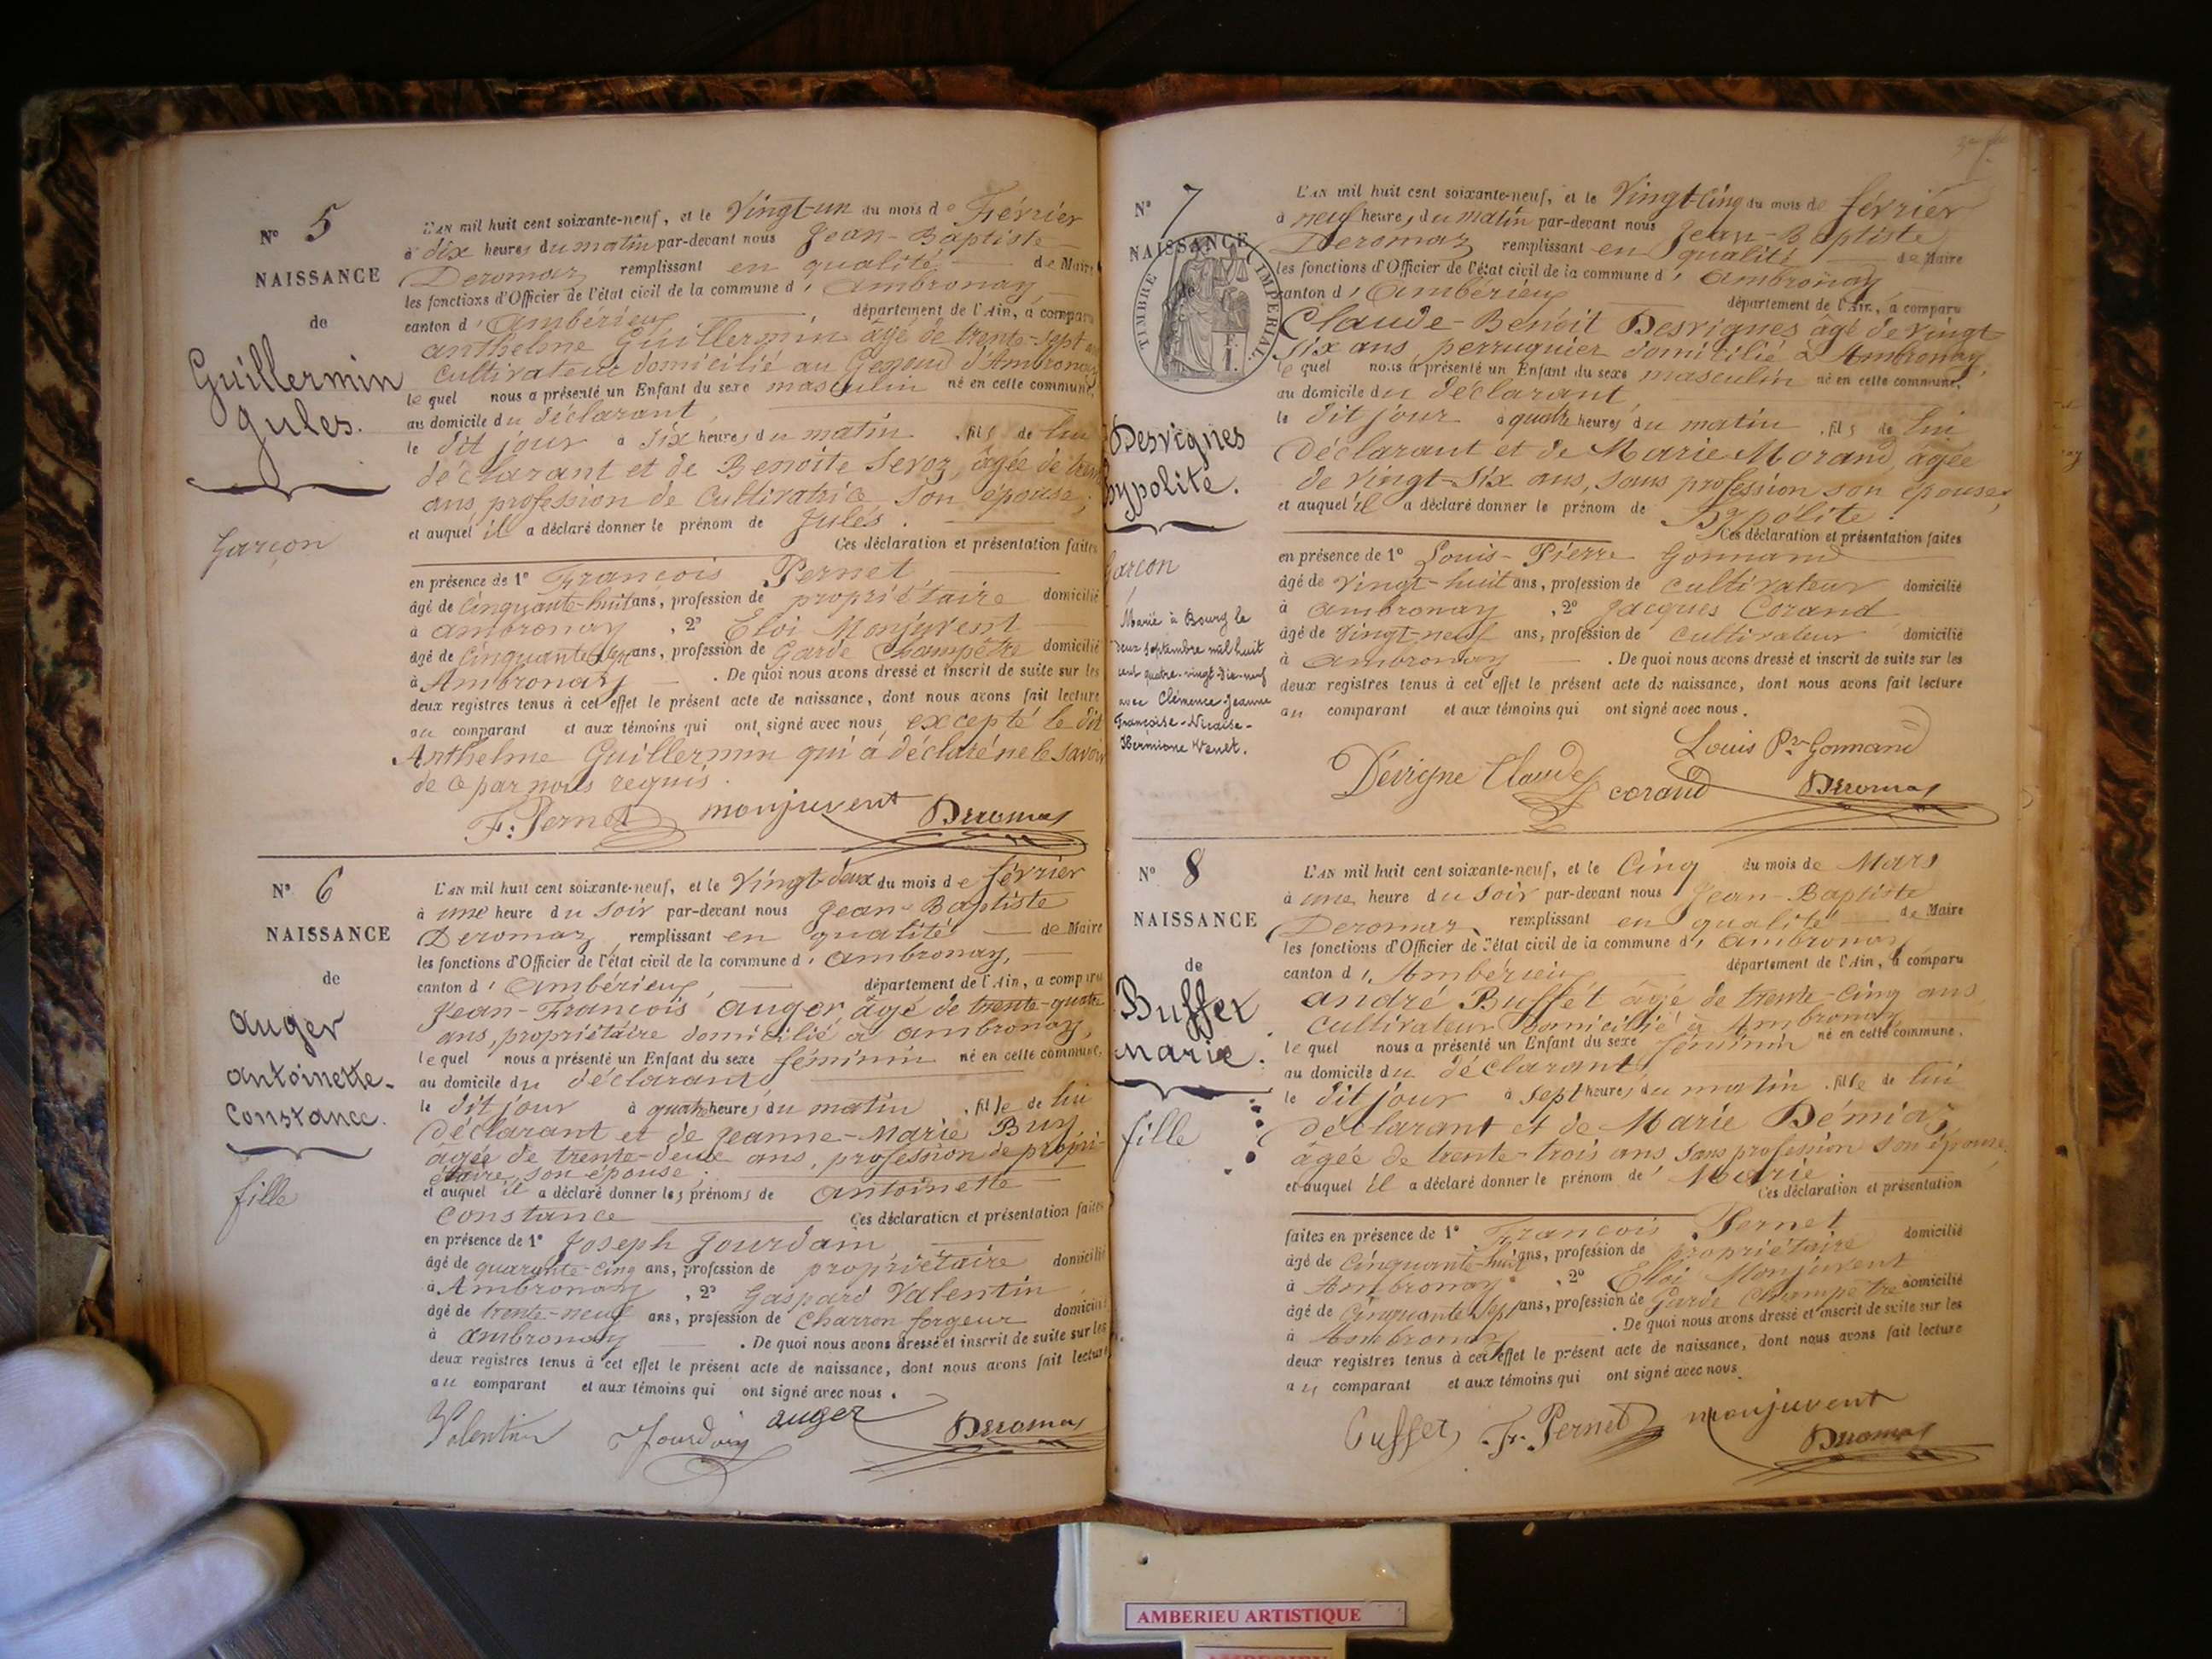 N° 5
NAISSANCE
de
Guillermin
Gules.
Garçon
L'AN mil huit cent soixante-neuf, et le Vingt-un du mois de Février
à dix heures du matin par-devant nous Jean-Baptiste
Deromaz remplissant en qualité de Maire
les fonctions d'Officier de l'état civil de la commune d'Ambronay,
canton d'Ambérieu département de l'Ain, a comparu
anthelme Guillermin âgé de trente-sept ans
cultivateur domicilié au Genoud d'Ambronay
lequel nous a présenté un Enfant du sexe masculin né en cette commune,
au domicile du déclarant,
le dit jour à six heures du matin, fils de lui
déclarant et de Benoite Servoz, âgée de trente
ans, profession de Cultivatrice son épouse,
et auquel il a déclaré donner le prénom de Jules.
Ces déclaration et présentation faites
en présence de 1° François Pernet
âgé de Cinquante-huit ans, profession de propriétaire domicilié
à ambronay, 2° Eloi Monjuvent
âgé de Cinquante Sept ans, profession de Garde Champêtre domicilié
à Ambronay. De quoi nous avons dressé et inscrit de suite sur les
deux registres tenus à cet effet le présent acte de naissance, dont nous avons fait lecture
au comparant et aux témoins qui ont signé avec nous, excepté le dit
Anthelme Guillermin qui a déclaré ne le savoir
de ce par nous requis.
F. Pernet monjuvent Deromas
N° 6
NAISSANCE
de
auger
antoinette-
Constance.
fille
L'AN mil huit cent soixante-neuf, et le Vingt-deux du mois de février
à une heure du soir par-devant nous Jean-Baptiste
Deromaz remplissant en qualité de Maire
les fonctions d'Officier de l'état civil de la commune d'Ambronay,
canton d'Ambérieu, département de l'Ain, a comparu
Jean-François auger, âgé de trente-quatre
ans, propriétaire domicilié à ambronay,
lequel nous a présenté un Enfant du sexe féminin né en cette commune,
au domicile du déclarant,
le dit jour à quatre heures du matin, fille de lui
déclarant et de Jeanne-Marie Buy
âgée de trente-deux ans, profession de propri-
étaire, son épouse;
et auquel il a déclaré donner les prénoms de antoinette
Constance Ces déclaration et présentation faites
en présence de 1° Joseph Jourdain
âgé de quarante-cinq ans, profession de propriétaire domicilié
à Ambronay, 2° Gaspard Valentin
âgé de trente-neuf ans, profession de Charron forgeur domicilié
à ambronay. De quoi nous avons dressé et inscrit de suite sur les
deux registres tenus à cet effet le présent acte de naissance, dont nous avons fait lecture
au comparant et aux témoins qui ont signé avec nous.
Valentin Jourdain auger Deromas
N° 7
NAISSANCE
de
TIMBRE IMPERIAL
1 F.
Desvignes
hypolite.
Garçon
Marié à Bourg le
deux septembre mil huit
cent quatre-vingt-dix-neuf
avec Clémence-Jeanne
Françoise-Nicaise-
Hermione Venet.
L'AN mil huit cent soixante-neuf, et le Vingt-Cinq du mois de février
à neuf heures du matin par-devant nous Jean-Baptiste
Deromaz remplissant en qualité de Maire
les fonctions d'Officier de l'état civil de la commune d'Ambronay
canton d'Ambérieu département de l'Ain, a comparu
Claude-Benoit Desvignes âgé de vingt-
six ans, perruquier domicilié à Ambronay,
lequel nous a présenté un Enfant du sexe masculin né en cette commune,
au domicile du déclarant
le dit jour à quatre heures du matin, fils de lui
déclarant et de Marie Morand, âgée
de vingt-six ans, sans profession son épouse,
et auquel il a déclaré donner le prénom de Hypolite.
Ces déclaration et présentation faites
en présence de 1° Louis-Pierre Gonnand
âgé de vingt-huit ans, profession de cultivateur domicilié
à ambronay, 2° Jacques Corand
âgé de vingt-neuf ans, profession de cultivateur domicilié
à ambronay. De quoi nous avons dressé et inscrit de suite sur les
deux registres tenus à cet effet le présent acte de naissance, dont nous avons fait lecture
au comparant et aux témoins qui ont signé avec nous.
Louis Pre Gonnand
Dévigne Claude corand Deromas
N° 8
NAISSANCE
de
Buffet
Marie.
fille
L'AN mil huit cent soixante-neuf, et le Cinq du mois de Mars
à une heure du soir par-devant nous Jean-Baptiste
Deromaz remplissant en qualité de Maire
les fonctions d'Officier de l'état civil de la commune d'ambronay
canton d'Ambérieu département de l'Ain, a comparu
andré Buffet âgé de trente-cinq ans
cultivateur domicilié à Ambronay
lequel nous a présenté un Enfant du sexe féminin né en cette commune,
au domicile du déclarant,
le dit jour à sept heures du matin, fille de lui
déclarant et de Marie Démia,
âgée de trente-trois ans sans profession son épouse,
et auquel il a déclaré donner le prénom de Marie.
Ces déclaration et présentation
faites en présence de 1° François Pernet domicilié
âgé de Cinquante-huit ans, profession de propriétaire
à Ambronay, 2° Eloi Monjuvent
âgé de Cinquante Sept ans, profession de Garde Champêtre domicilié
à Ambronay. De quoi nous avons dressé et inscrit de suite sur les
deux registres tenus à cet effet le présent acte de naissance, dont nous avons fait lecture
au comparant et aux témoins qui ont signé avec nous.
Buffet, Fr. Pernet monjuvent
Deromas
AMBERIEU ARTISTIQUE